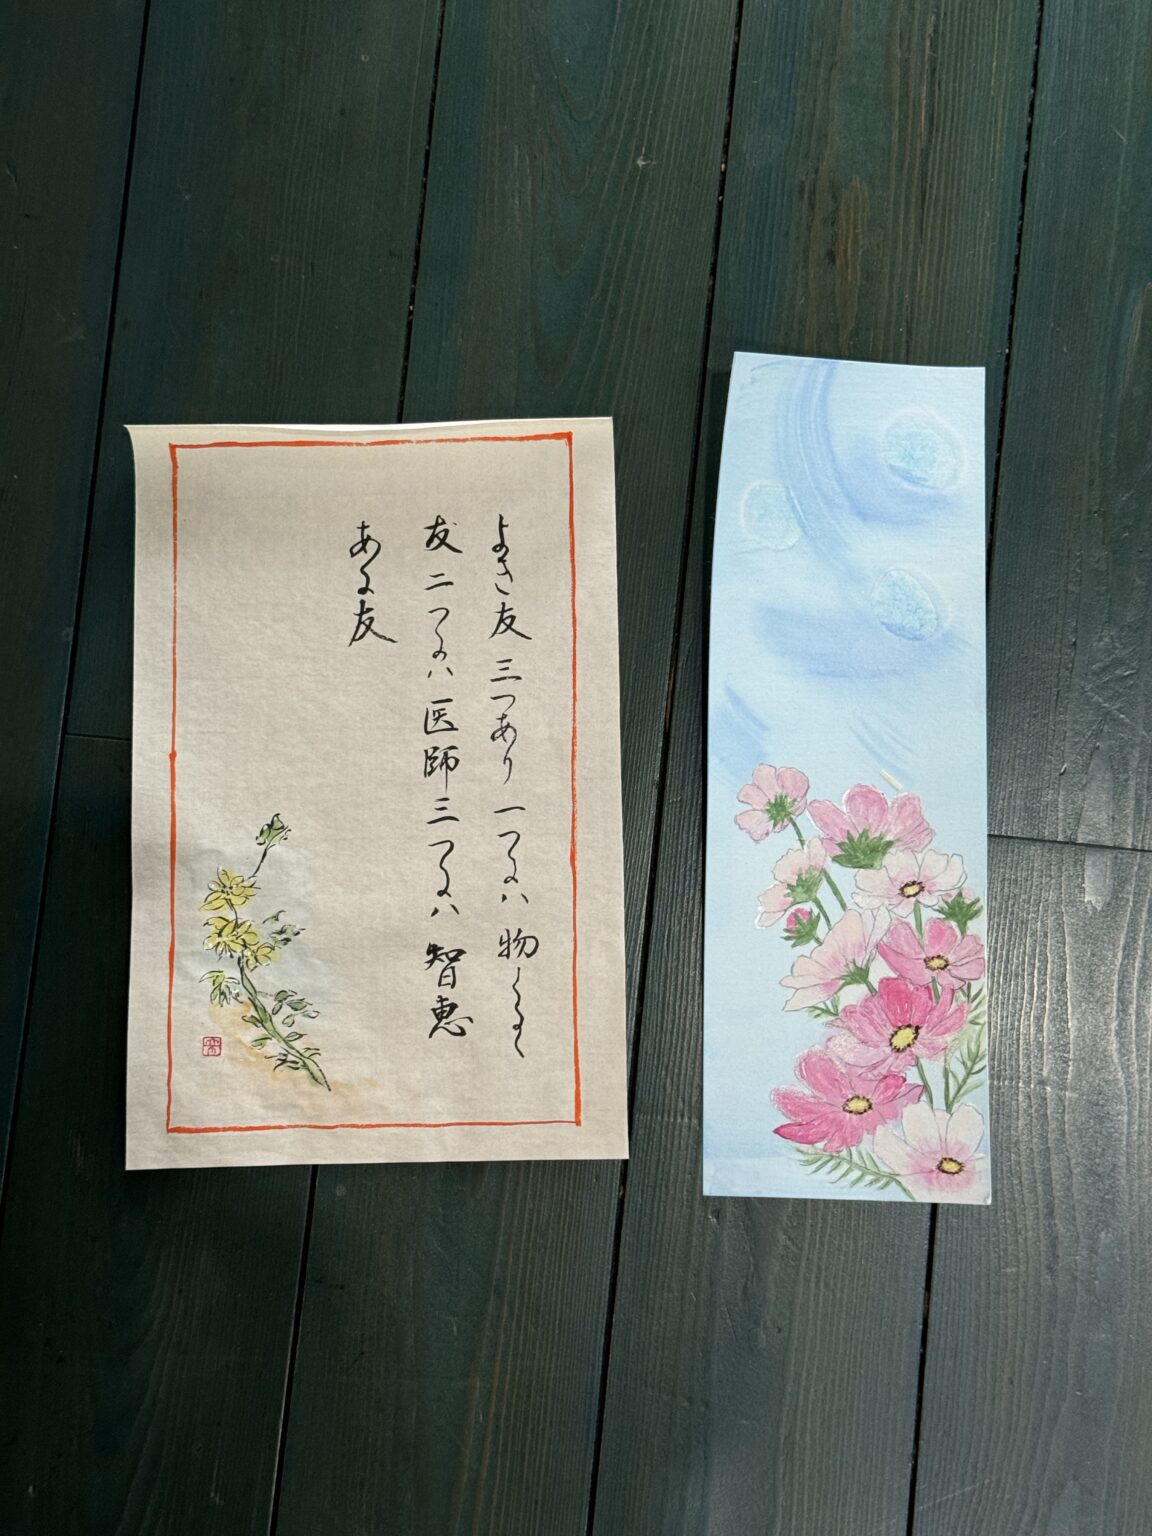 よき友三つあり一つには物くるゝ
友二つには医師三つには智恵
ある友